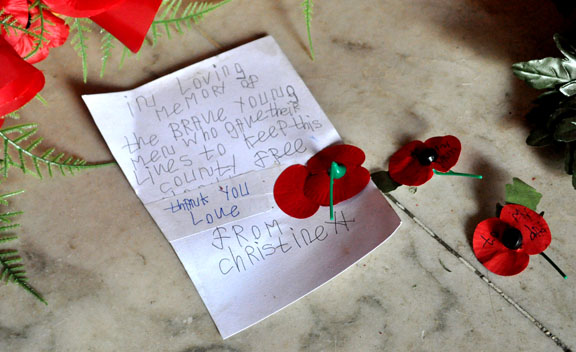 in Loving
MeMory of
the BRAVE YOUNG
MeN WHO gave their
Lives to KEEP this
count FREE
thank YOU
LOVE
FROM
christine H